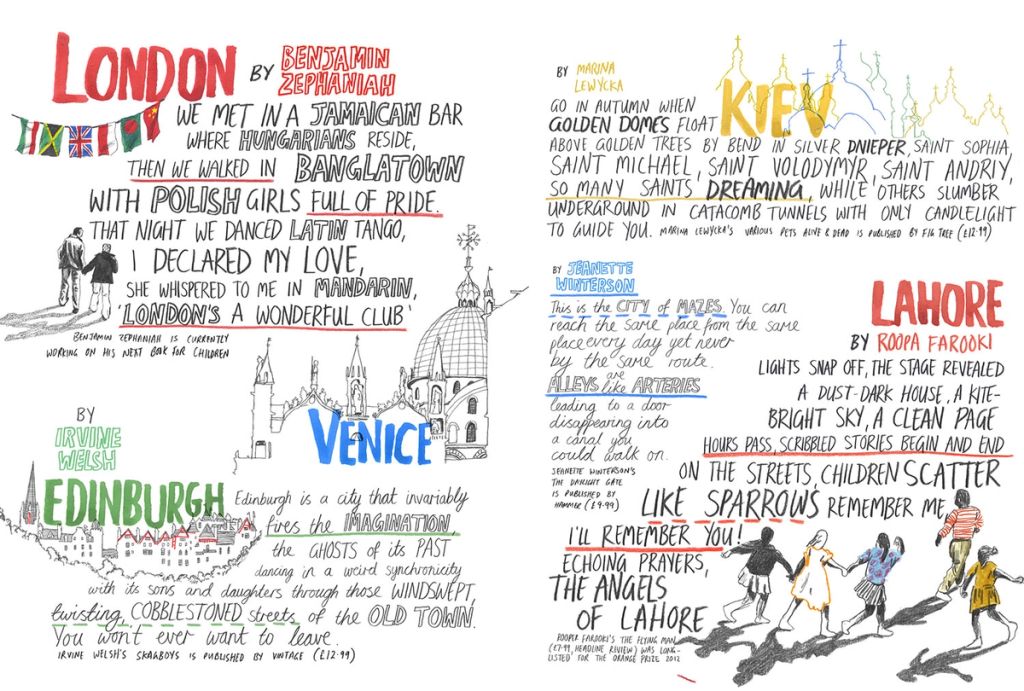 LONDON BY BENJAMIN
ZEPHANIAH
WE MET IN A JAMAICAN BAR
WHERE HUNGARIANS RESIDE,
THEN WE WALKED IN BANGLATOWN
WITH POLISH GIRLS FULL OF PRIDE.
THAT NIGHT WE DANCED LATIN TANGO,
I DECLARED MY LOVE,
SHE WHISPERED TO ME IN MANDARIN,
'LONDON'S A WONDERFUL CLUB'
BENJAMIN ZEPHANIAH IS CURRENTLY
WORKING ON HIS NEXT BOOK FOR CHILDREN
BY
IRVINE
WELSH
EDINBURGH
Edinburgh is a city that invariably
fires the IMAGINATION
the GHOSTS of its PAST
dancing in a weird synchronicity
with its sons and daughters through those WINDSWEPT,
twisting, COBBLESTONED streets of the OLD TOWN.
You won't ever want to leave.
IRVINE WELSH'S SKAGBOYS IS PUBLISHED BY VINTAGE (£12.99)
VENICE
BY JEANETTE
WINTERSON
This is the CITY of MAZES. You can
reach the same place from the same
place every day yet never
by the same route.
ALLEYS are like ARTERIES
leading to a door
disappearing into
a canal you
could walk on.
JEANETTE WINTERSON'S
THE DAYLIGHT GATE
IS PUBLISHED BY
HAMMER (£9.99)
BY MARINA
LEWYCKA
KIEV
GO IN AUTUMN WHEN
GOLDEN DOMES FLOAT
ABOVE GOLDEN TREES BY BEND IN SILVER DNIEPER, SAINT SOPHIA,
SAINT MICHAEL, SAINT VOLODYMYR, SAINT ANDRIY,
SO MANY SAINTS DREAMING, WHILE OTHERS SLUMBER
UNDERGROUND IN CATACOMB TUNNELS WITH ONLY CANDLELIGHT
TO GUIDE YOU. MARINA LEWYCKA'S VARIOUS PETS ALIVE & DEAD IS PUBLISHED BY FIG TREE (£12.99)
LAHORE
BY ROOPA FAROOKI
LIGHTS SNAP OFF, THE STAGE REVEALED
A DUST-DARK HOUSE, A KITE-
BRIGHT SKY, A CLEAN PAGE
HOURS PASS, SCRIBBLED STORIES BEGIN AND END
ON THE STREETS, CHILDREN SCATTER
LIKE SPARROWS REMEMBER ME,
I'LL REMEMBER YOU!
ECHOING PRAYERS,
THE ANGELS
OF LAHORE
ROOPER FAROOKI'S THE FLYING MAN
(£7.99, HEADLINE REVIEW) WAS LONG-
LISTED FOR THE ORANGE PRIZE 2012